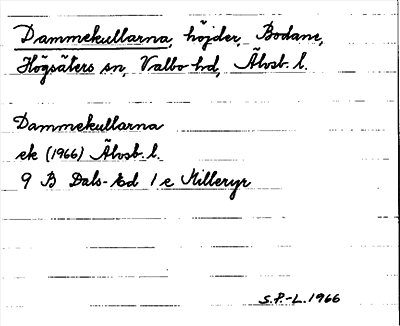 Dammekullarna, höjder, Bodane,
Högsäters sn, Valbo hd, Älvsb. l.
Dammekullarna
ek (1966) Älvsb. l.
9 B Dals-Ed 1 e Milleryr
S.P.-L. 1966